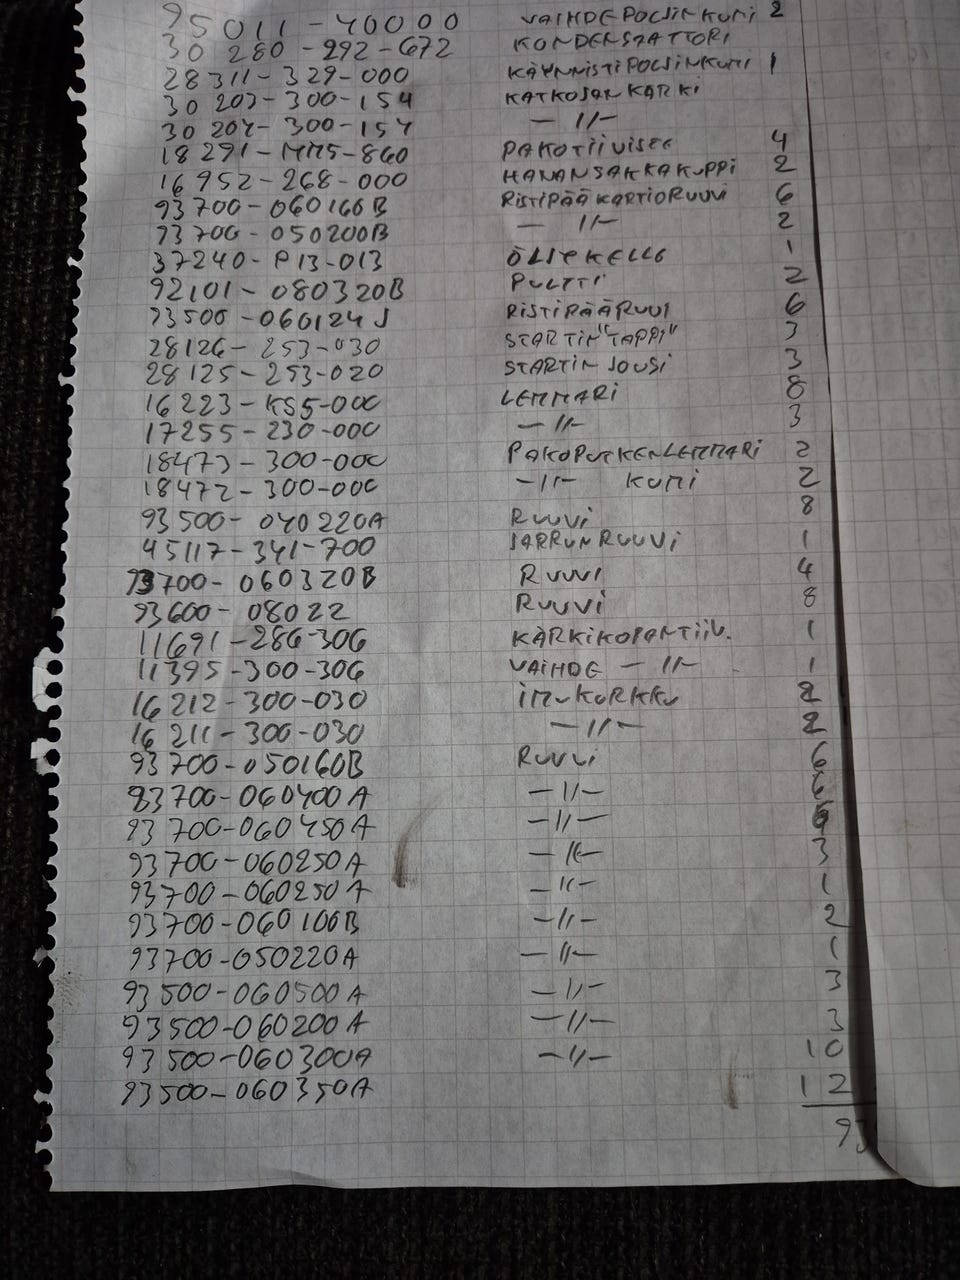 95011-40000 VAIHDEPOLJINKUMI 2
30 280-292-672 KONDENSAATTORI
28311-329-000 KÄYNNISTIPOLJINKUMI 1
30 203-300-154 KATKOJAN KÄRKI
30 204-300-154 -11-
18 291-MM5-860 PAKOTIIVISTE 4
16 952-268-000 HANANSAKKAKUPPI 2
93700-060160B RISTIPÄÄKARTIORUUVI 6
93700-050200B -11- 2
37240-P13-013 ÖLJYKELLO 1
92101-080320B PULTTI 2
93500-060124J RISTIPÄÄRUUVI 6
28126-253-030 STARTIN "TAPPI" 3
28125-253-020 STARTIN JOUSI 3
16223-KS5-000 LEMMARI 8
17255-230-000 -11- 3
18473-300-000 PAKOPUTKENLEMMARI 2
18472-300-000 -11- KUMI 2
93500-040220A RUUVI 8
45117-341-700 JARRUNRUUVI 1
93700-060320B RUUVI 4
93600-08022 RUUVI 8
11691-286-306 KÄRKIKOPANTIIV. 1
11395-300-306 VAIHDE -11- 1
16212-300-030 IMUKURKKU 2
16211-300-030 -11- 2
93700-050160B RUUVI 6
93700-060400A -11- 6
93700-060450A -11- 6
93700-060250A -11- 3
93700-060250A -11- 1
93700-060100B -11- 2
93700-050220A -11- 1
93500-060500A -11- 3
93500-060200A -11- 3
93500-060300A -11- 10
93500-060350A 12